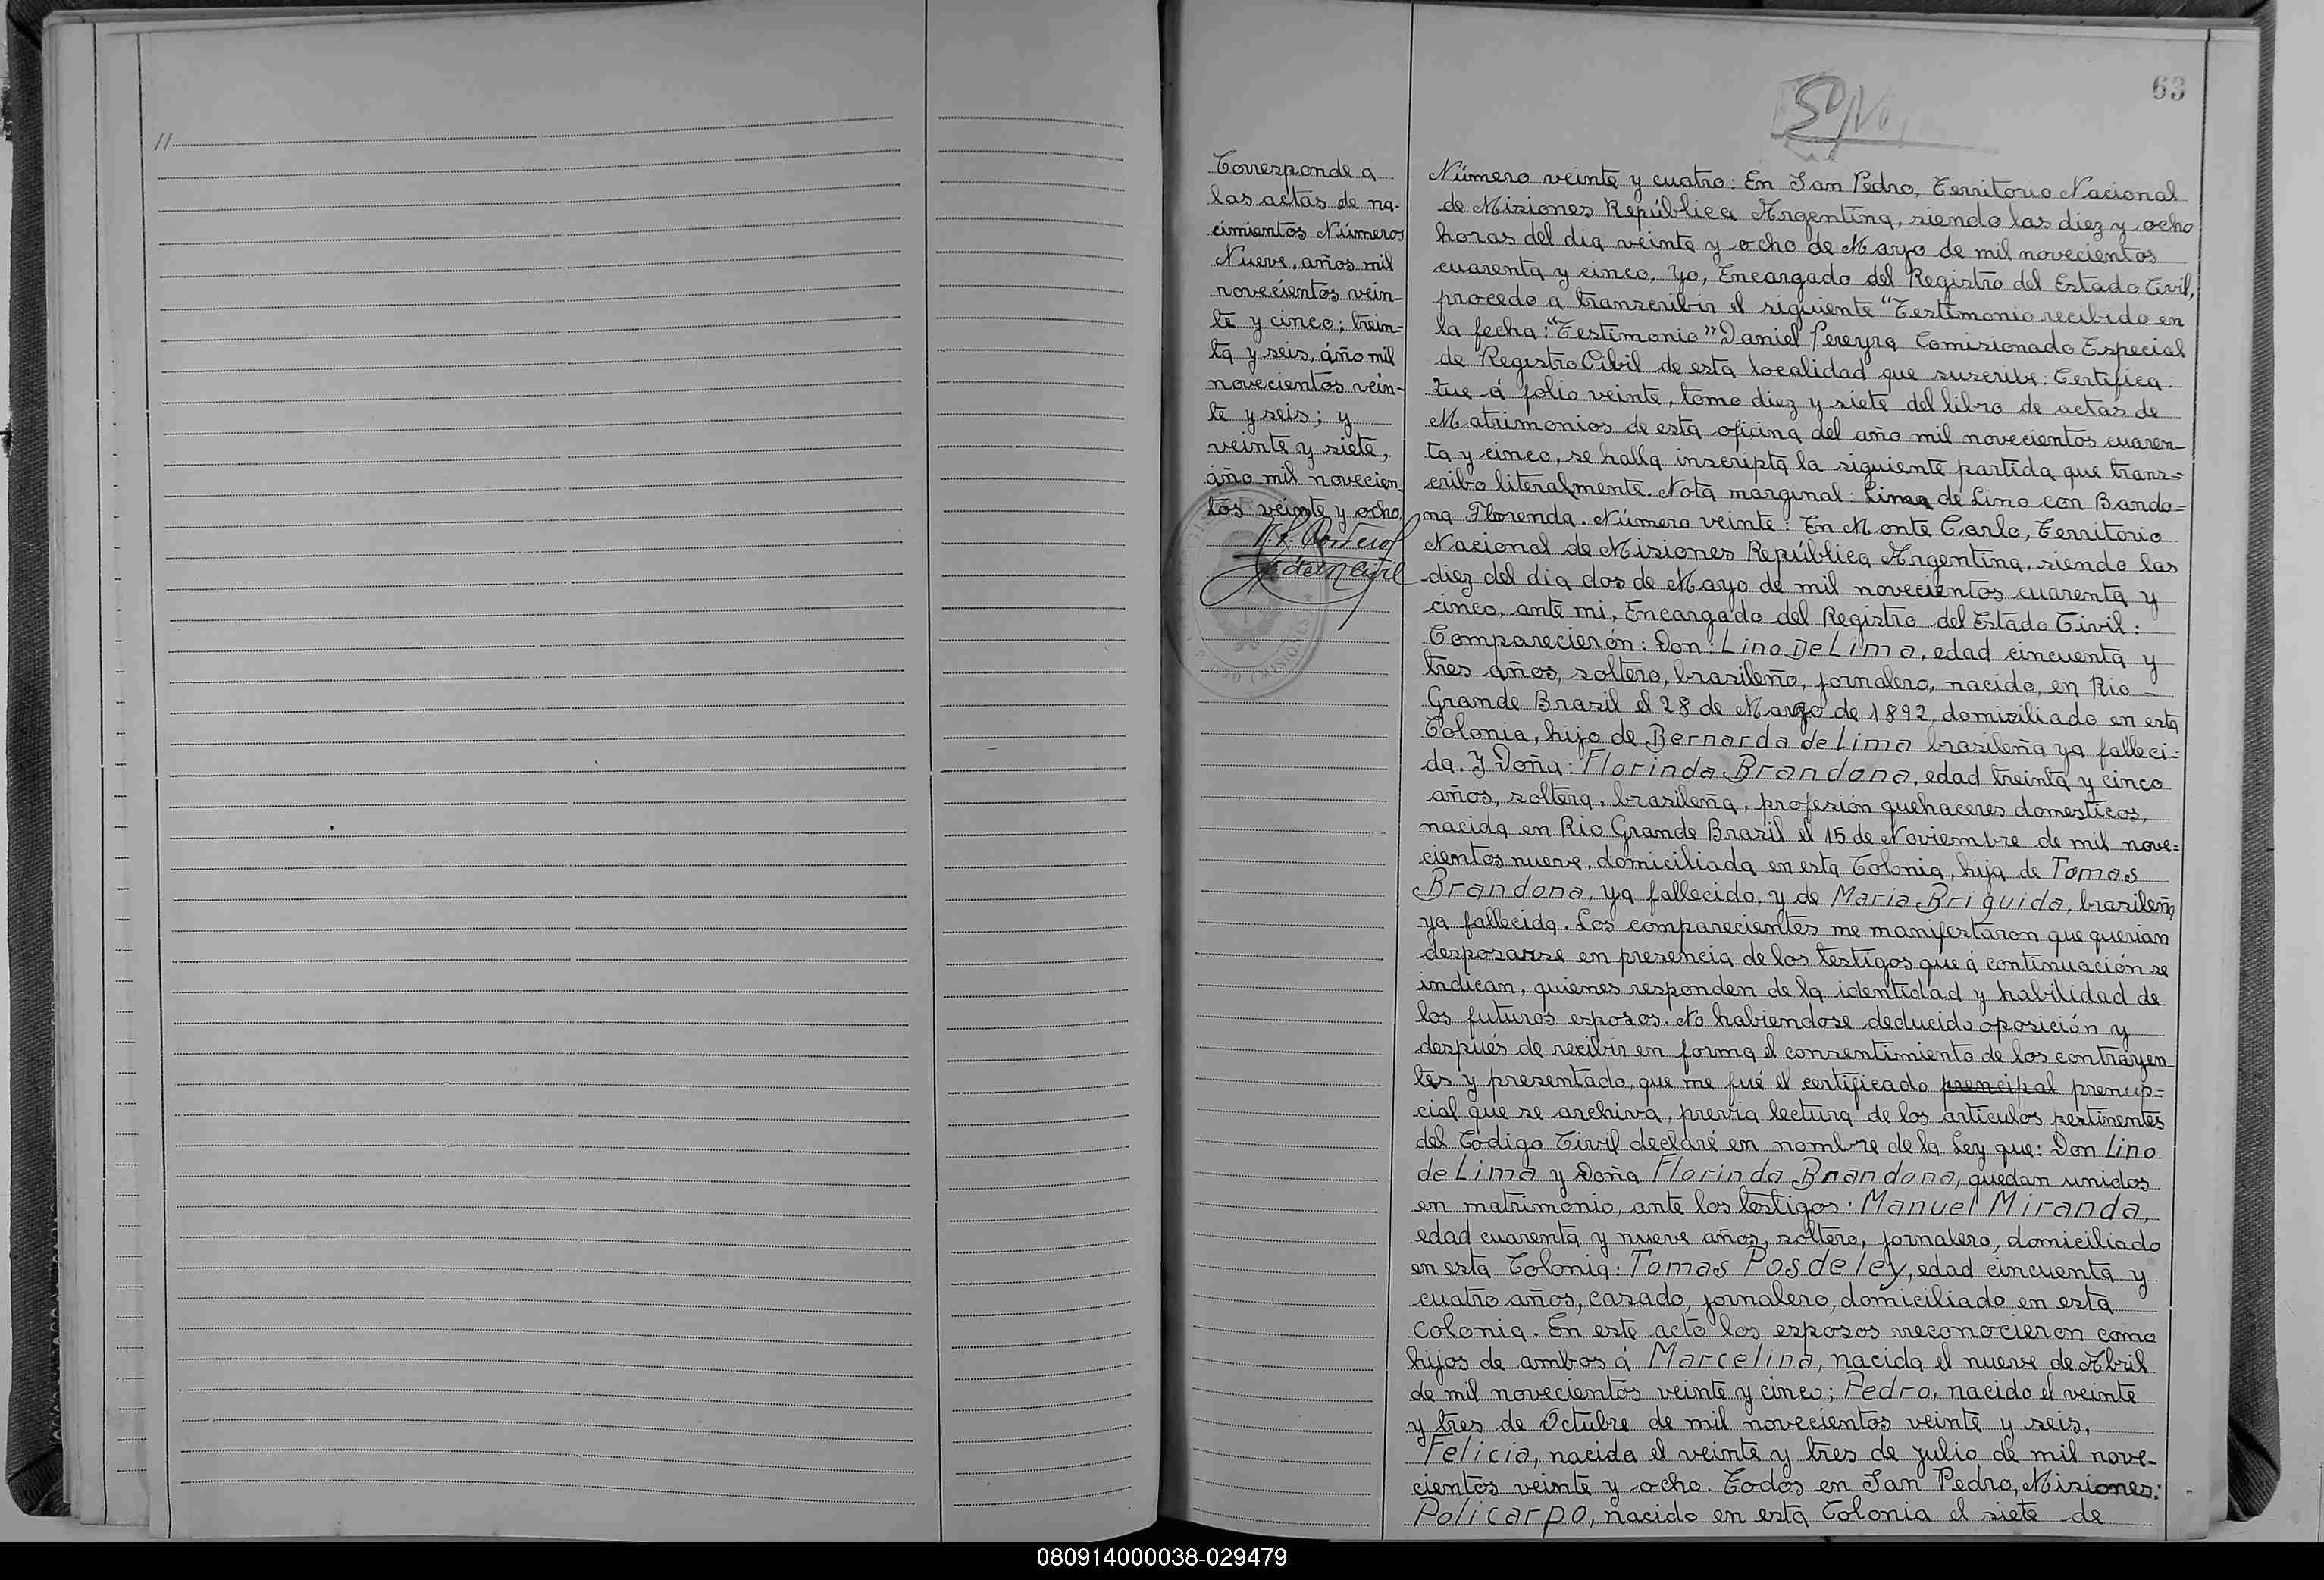 11
63
Corresponde a
las actas de na-
cimientos Números
Nueve, años mil
novecientos vein-
te y cinco; trein=
ta y seis, año mil
novecientos vein-
te y seis; y
veinte y siete,
año mil novecien
tos veinte y ocho
Número veinte y cuatro: En San Pedro, Territorio Nacional
de Misiones República Argentina, siendo las diez y ocho
horas del dia veinte y ocho de Mayo de mil novecientos
cuarenta y cinco, yo, Encargado del Registro del Estado Civil,
procedo a transcribir el siguiente "Testimonio recibido en
la fecha: "Testimonio" Daniel Pereyra Comisionado Especial
de Registro Civil de esta localidad que suscribe: Certifica:
Que á folio veinte, tomo diez y siete del libro de actas de
Matrimonios de esta oficina del año mil novecientos cuaren-
ta y cinco, se halla inscripta la siguiente partida que trans=
cribo literalmente. Nota marginal: Lima de Lino con Bando=
na Florenda. Número veinte: En Monte Carlo, Territorio
Nacional de Misiones República Argentina, siendo las
diez del dia dos de Mayo de mil novecientos cuarenta y
cinco, ante mi, Encargado del Registro del Estado Civil:
Comparecierón: Don: Lino De Lima, edad cincuenta y
tres años, soltero, brasileño, jornalero, nacido, en Rio
Grande Brasil el 28 de Marzo de 1892, domiciliado en esta
Colonia, hijo de Bernarda de Lima brasileña ya falleci=
da. Y Doña: Florinda Brandona, edad treinta y cinco
años, soltera, brasileña, profesión quehaceres domesticos,
nacida en Rio Grande Brasil el 15 de Noviembre de mil nove=
cientos nueve, domiciliada en esta Colonia, hija de Tomas
Brandona, ya fallecido, y de Maria Briguida, brasileña
ya fallecida. Los comparecientes me manifestaron que querian
desposarse en presencia de los testigos que á continuación se
indican, quienes responden de la identidad y habilidad de
los futuros esposos. No habiendose deducido oposición y
después de recibir en forma el consentimiento de los contrayen-
tes y presentado, que me fué el certificado prencipal prenup=
cial que se archiva, previa lectura de los artículos pertinentes
del Código Civil declaré en nombre de la Ley que: Don Lino
de Lima y Doña Florinda Brandona, quedan unidos
en matrimonio, ante los testigos: Manuel Miranda,
edad cuarenta y nueve años, soltero, jornalero, domiciliado
en esta Colonia: Tomas Posdeley, edad cincuenta y
cuatro años, casado, jornalero, domiciliado en esta
Colonia. En este acto los esposos reconocieron como
hijos de ambos á Marcelina, nacida el nueve de Abril
de mil novecientos veinte y cinco; Pedro, nacido el veinte
y tres de Octubre de mil novecientos veinte y seis,
Felicia, nacida el veinte y tres de julio de mil nove-
cientos veinte y ocho. Todos en San Pedro, Misiones:
Policarpo, nacido en esta Colonia el siete de
080914000038-029479